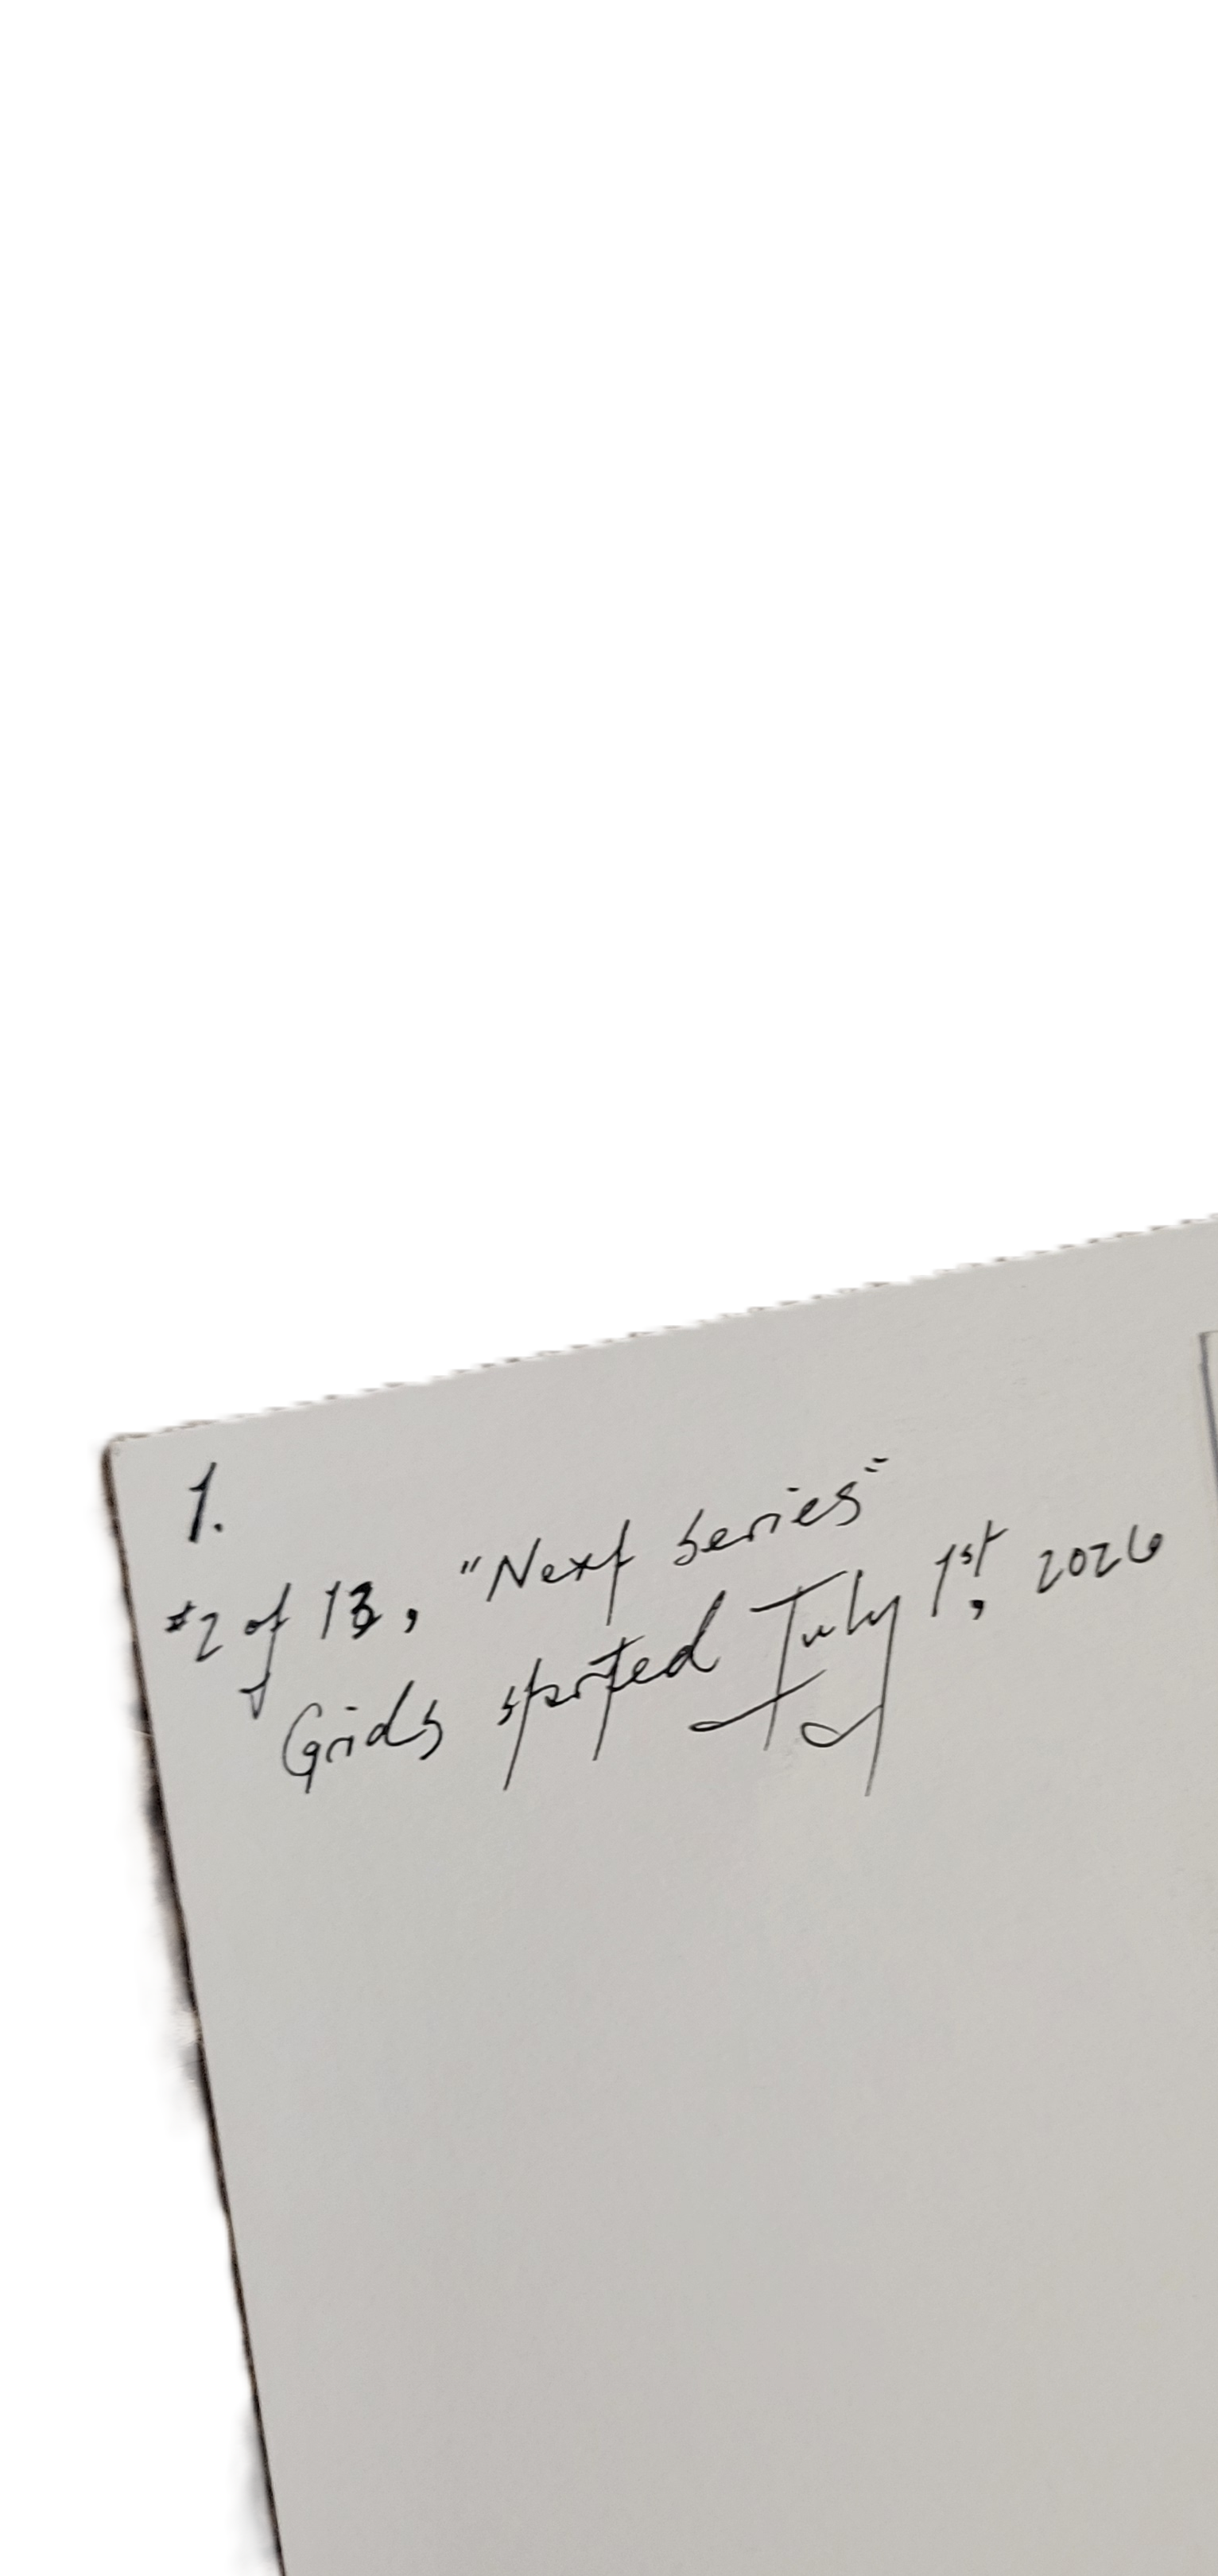 1.
#2 of 13, "Next Series"
Grids started July 1st, 2026